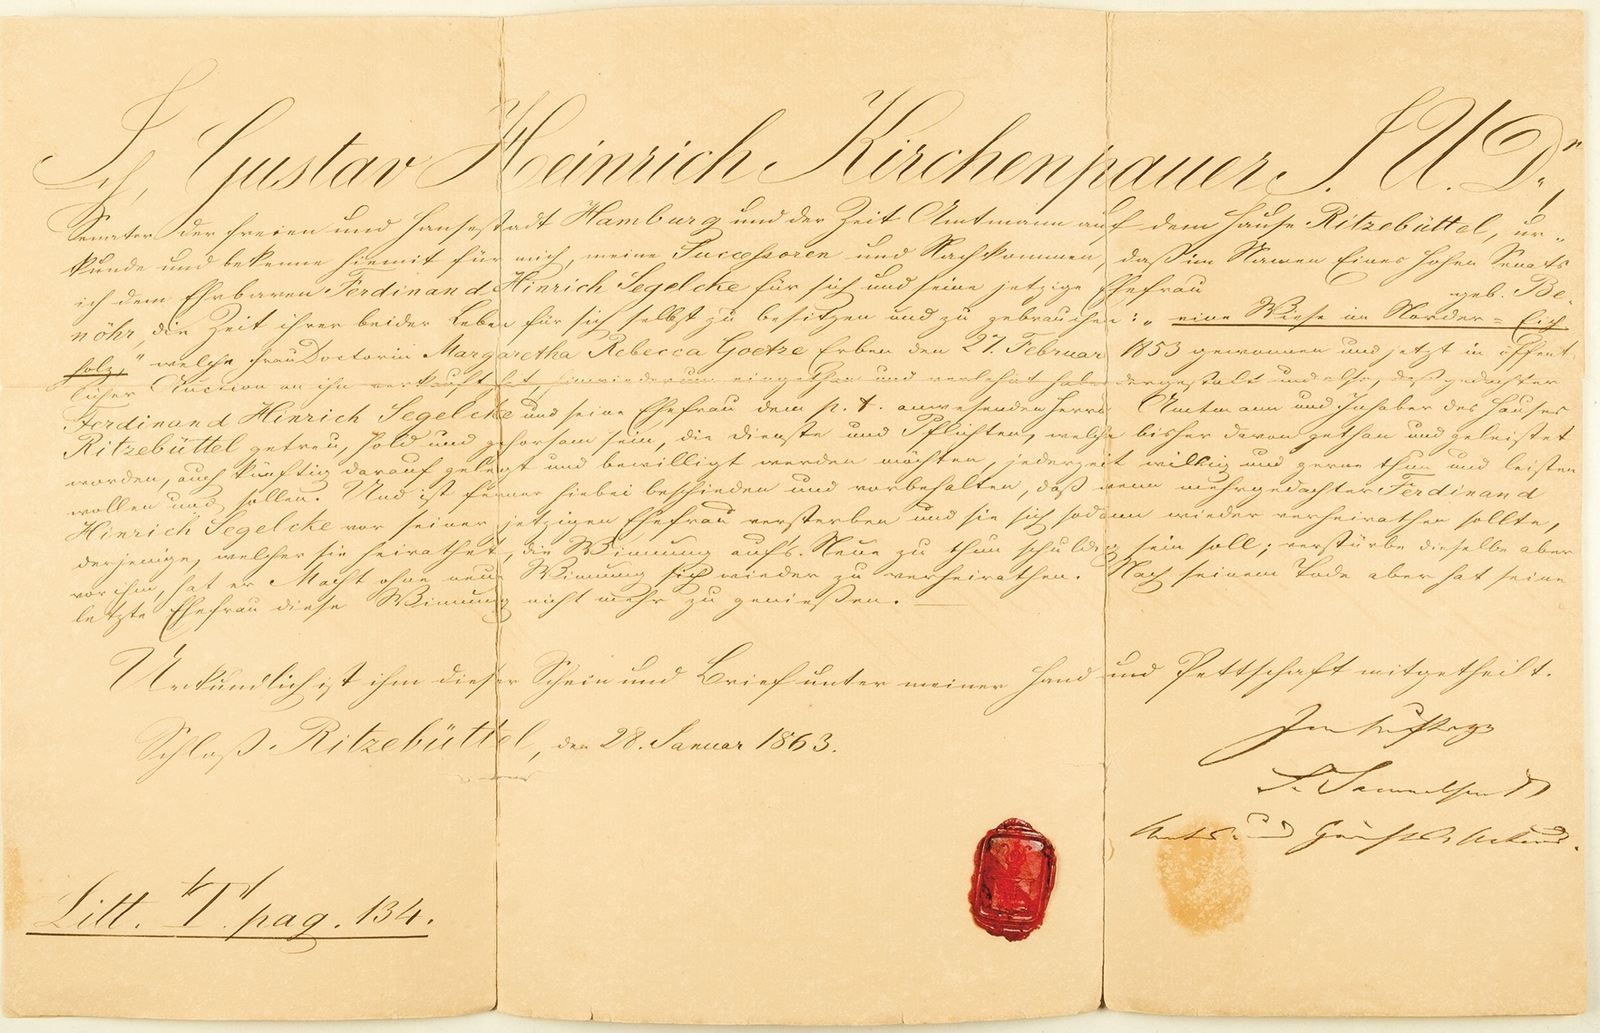 Ich, Gustav Heinrich Kirchenpauer J. U. Dr.,
Senator der freien und Hansestadt Hamburg und der Zeit Amtmann auf dem Hause Ritzebüttel, ur-
kunde und bekenne hiemit für mich, meine Successoren und Nachkommen, daß im Namen Eines Hohen Senats
ich dem Ehrbaren Ferdinand Hinrich Segelcke für sich und seine jetzige Ehefrau geb. Be-
nöhr, die Zeit ihrer beider Leben für sich selbst zu besitzen und zu gebrauchen: „eine Wiese in Norder-Eich
holz,“ welche Frau Doctorin Margaretha Rebecca Goetze Erben den 27. Februar 1853 gewonnen und jetzt in öffent-
licher Auction an ihn verkauft hat, hinwiederum eingethan und verlehnt habe dergestalt und also, daß gedachter
Ferdinand Hinrich Segelcke und seine Ehefrau dem p. t. anwesenden Herrn Amtmann und Inhaber des Hauses
Ritzebüttel getreu, hold und gehorsam sein, die Dienste und Pflichten, welche bisher davon gethan und geleistet
worden, auch künftig darauf gelegt und bewilligt werden möchten, jederzeit willig und gerne thun und leisten
wollen und sollen. Und ist ferner hiebei beschieden und vorbehalten, daß wenn mehrgedachter Ferdinand
Hinrich Segelcke vor seiner jetzigen Ehefrau versterben und sie sich sodann wieder verheirathen sollte,
derjenige, welcher sie heirathet, die Winnung aufs Neue zu thun schuldig sein soll; verstürbe dieselbe aber
vor ihm, hat er Macht ohne neue Winnung sich wieder zu verheirathen. Nach seinem Tode aber hat seine
letzte Ehefrau diese Winnung nicht mehr zu genießen.
Urkundlich ist ihm dieser Schein und Brief unter meiner Hand und Pettschaft mitgetheilt.
Schloß Ritzebüttel, den 28. Januar 1863.
Amts und Gerichts Actuar.
Litt. "T" pag. 134.